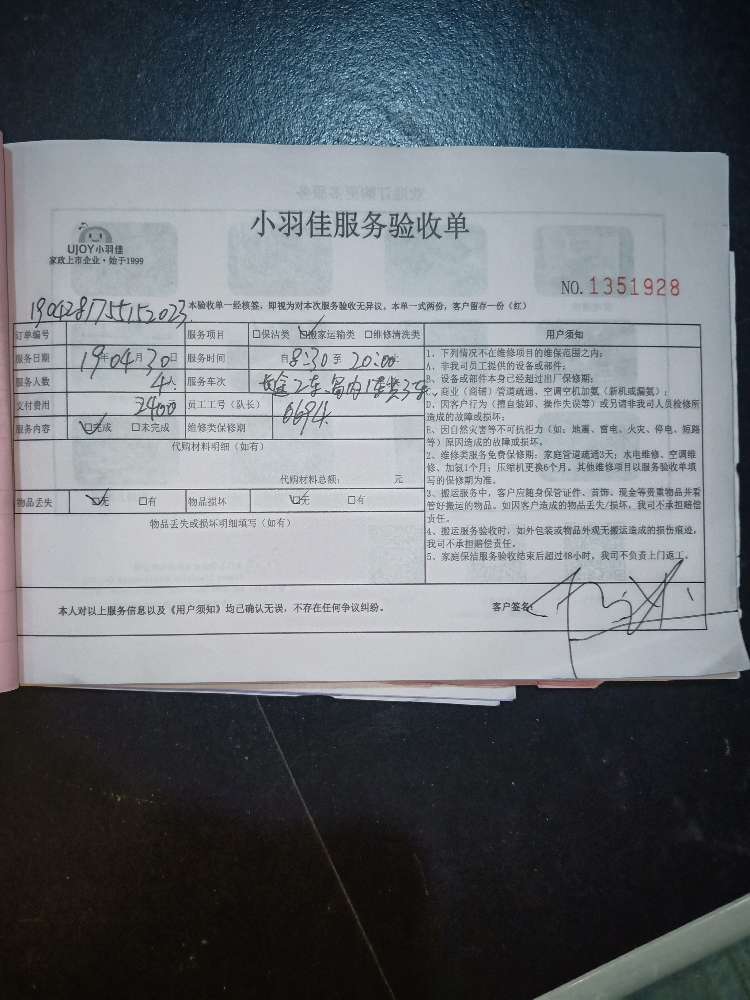 小羽佳服务验收单
UJOY小羽佳
家政上市企业·始于1999
NO.1351928
190428175515202 3
本验收单一经核签，即视为对本次服务验收无异议。本单一式两份，客户留存一份（红）
订单编号 服务项目 □保洁类 ☑搬家运输类 □维修清洗类 用户须知
服务日期 19年04月30日 服务时间 自8:30至20:00
服务人数 4人 服务车次 长途2车.省内1车共3车
支付费用 2400 员工工号（队长） 0694
服务内容 ☑完成 □未完成 维修类保修期
代购材料明细（如有）
代购材料总额： 元
物品丢失 ☑无 □有 物品损坏 ☑无 □有
物品丢失或损坏明细填写（如有）
1、下列情况不在维修项目的维保范围之内：
A、非我司员工提供的设备或部件；
B、设备或部件本身已经超过出厂保修期；
C、商业（商铺）管道疏通、空调空机加氨（新机或漏氨）；
D、因客户行为（擅自装卸、操作失误等）或另请非我司人员检修所
造成的故障或损坏；
E、因自然灾害等不可抗力（如：地震、雷电、火灾、停电、短路
等）原因造成的故障或损坏。
2、维修类服务免费保修期：家庭管道疏通3天；水电维修、空调维
修、加氨1个月；压缩机更换6个月。其他维修项目以服务验收单填
写的保修期为准。
3、搬运服务中，客户应随身保管证件、首饰、现金等贵重物品并看
管好搬运的物品。如因客户造成的物品丢失/损坏，我司不承担赔偿
责任。
4、搬运服务验收时，如外包装或物品外观无搬运造成的损伤痕迹，
我司不承担赔偿责任。
5、家庭保洁服务验收结束后超过48小时，我司不负责上门返工。
本人对以上服务信息以及《用户须知》均已确认无误，不存在任何争议纠纷。 客户签名：